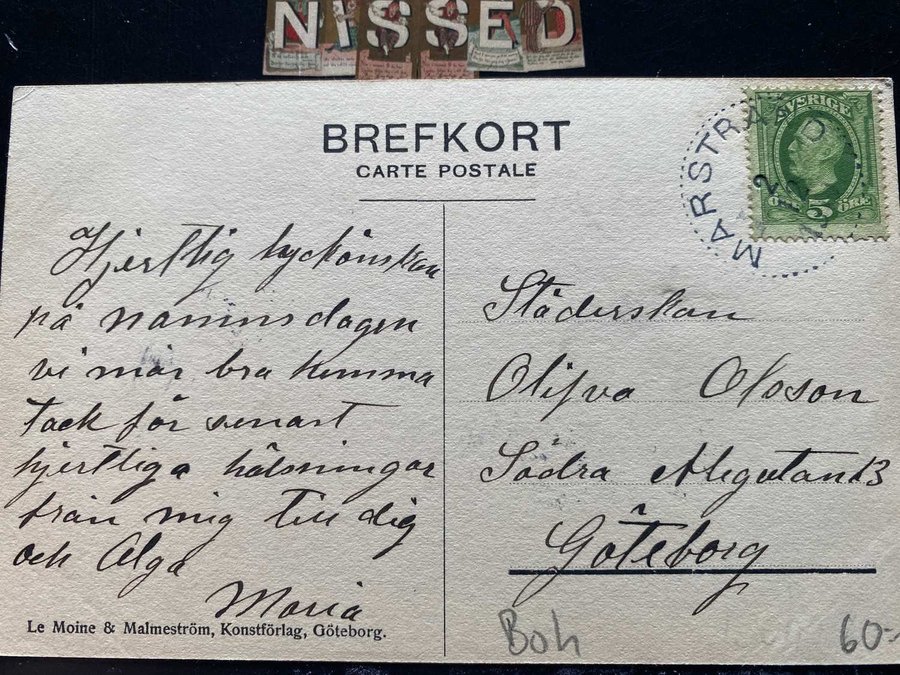 NISSED
BREFKORT
CARTE POSTALE
SVERIGE
5 ÖRE
MARSTRA
Hjertlig lyckönskan
på namnsdagen
vi mår bra hemma
tack för senast
hjertliga hälsningar
från mig till dig
och Alga
Maria
Städerskan
Olifva Olsson
Södra Allegutan 13
Göteborg
Le Moine & Malmeström, Konstförlag, Göteborg.
Boh
60-